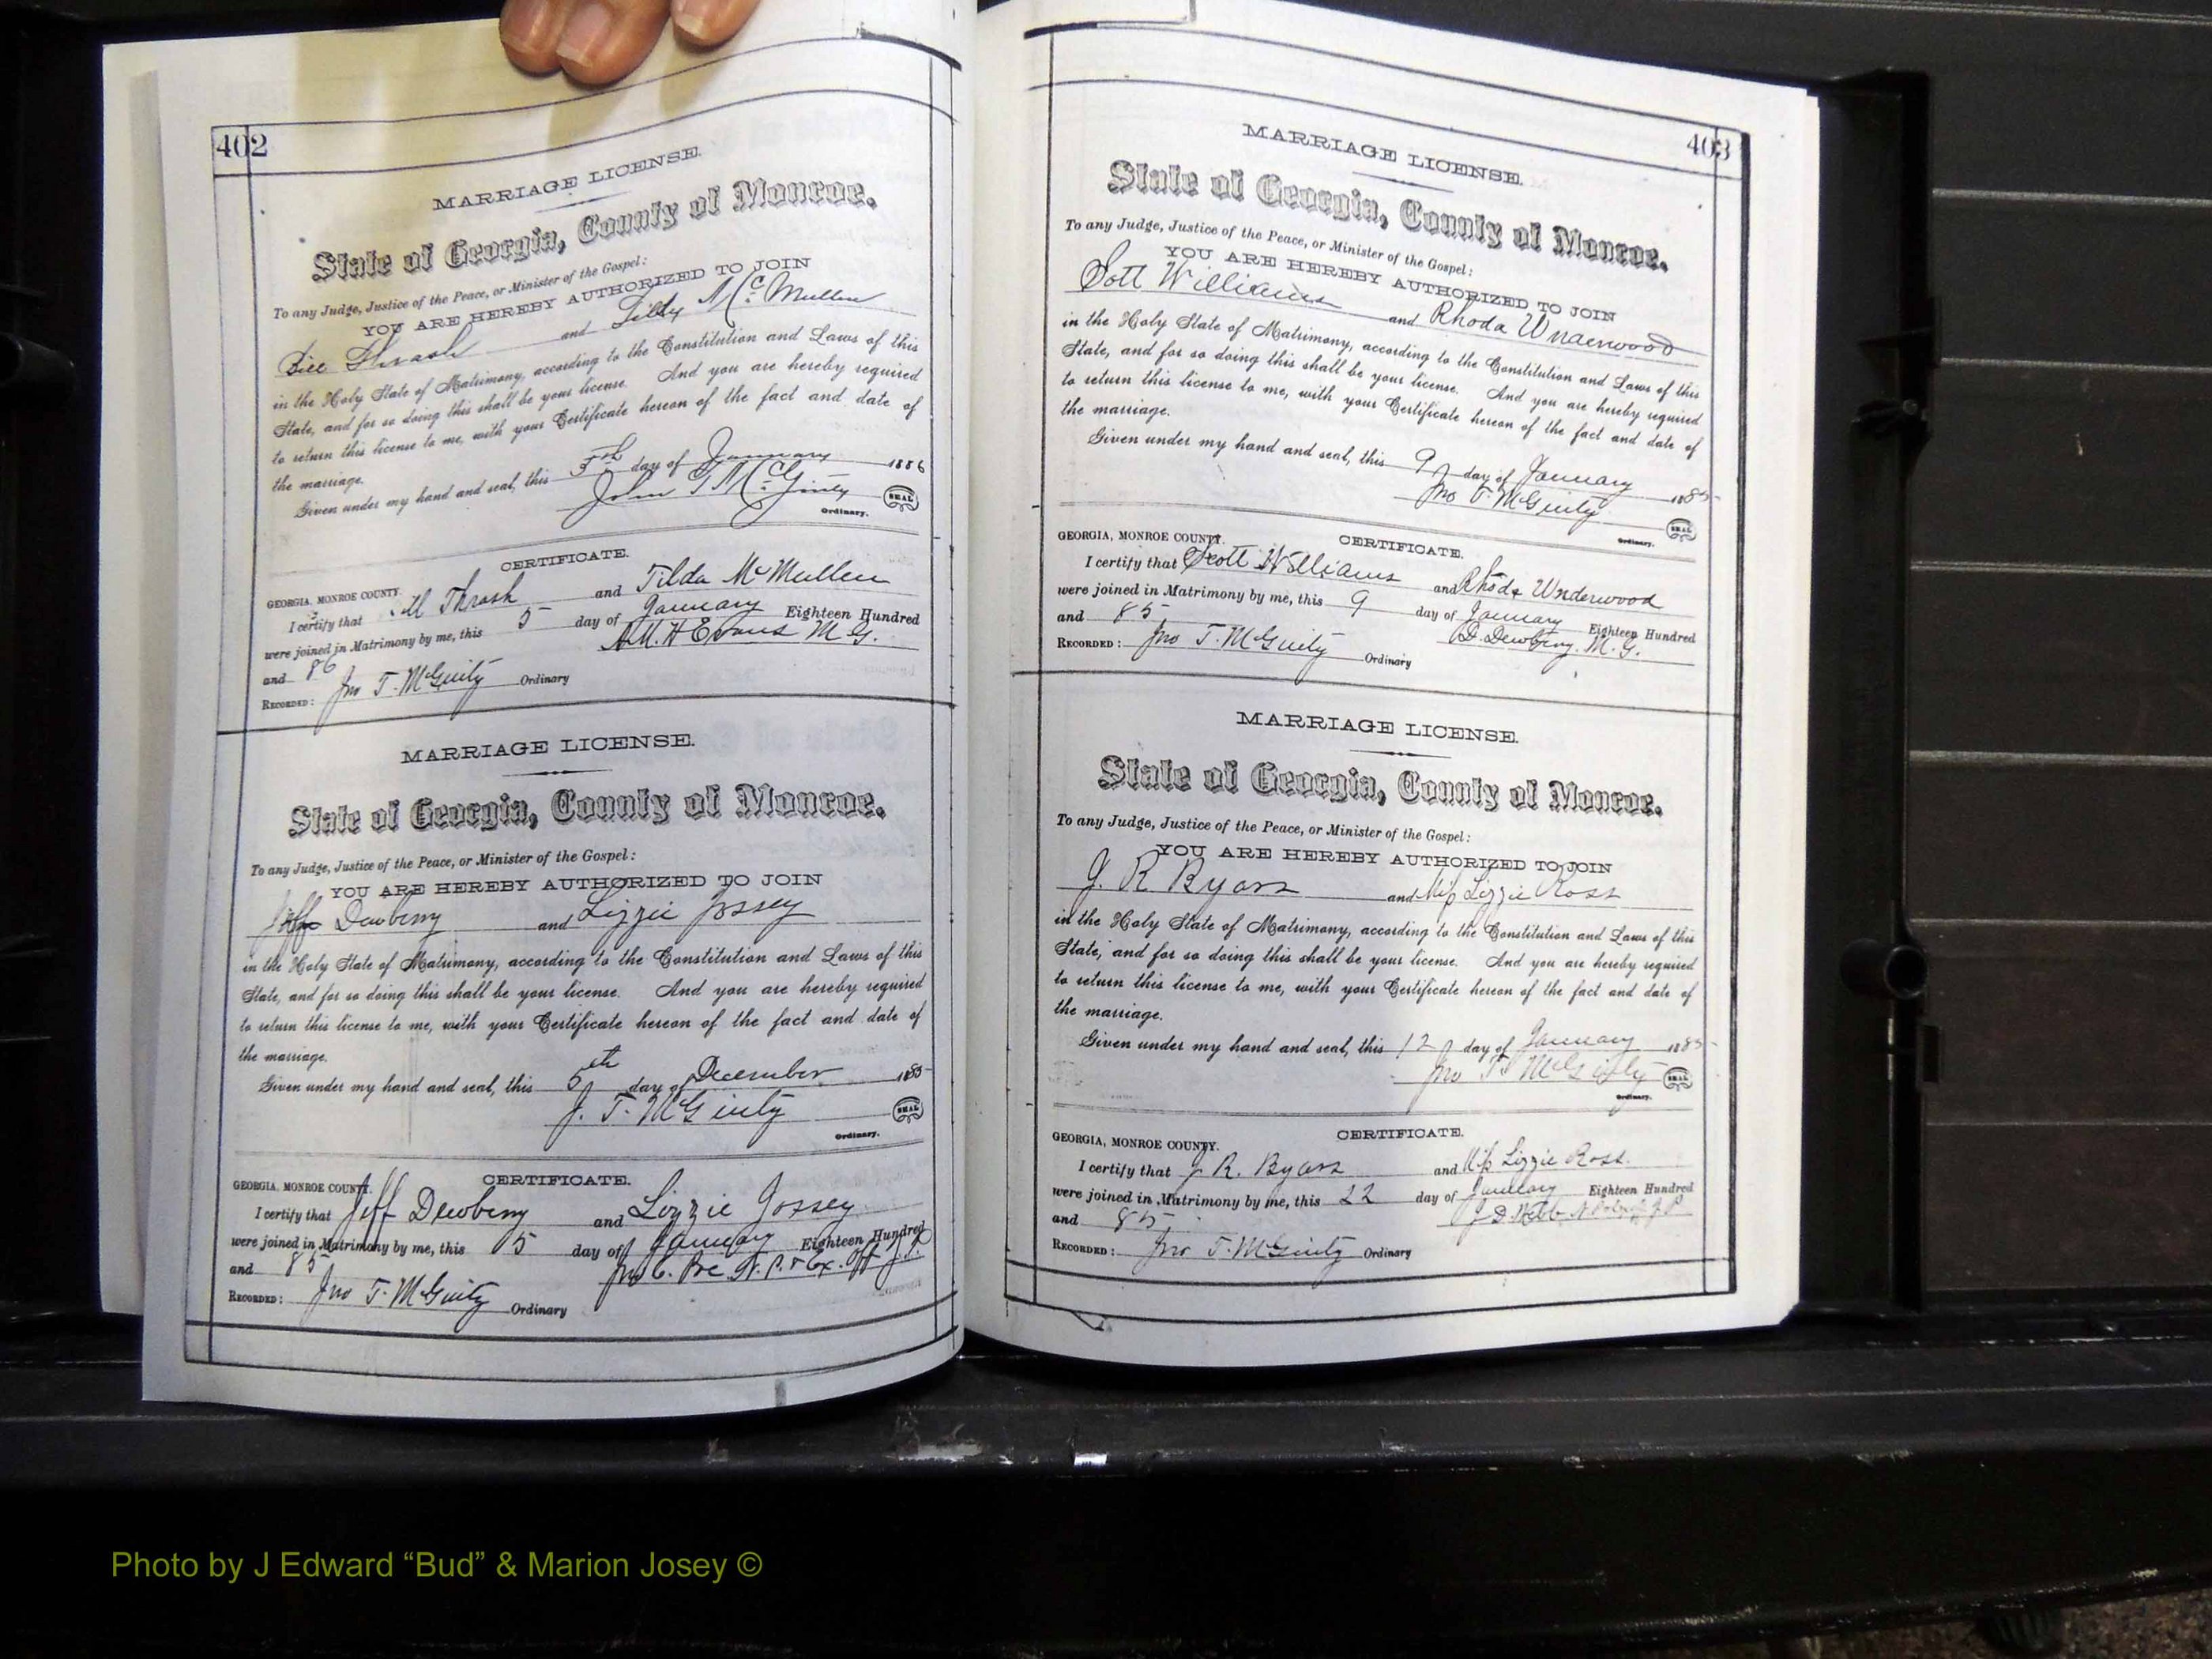 402
MARRIAGE LICENSE.
State of Georgia, County of Monroe.
To any Judge, Justice of the Peace, or Minister of the Gospel:
YOU ARE HEREBY AUTHORIZED TO JOIN
Bill Thrash and Tildy McMullen
in the Holy State of Matrimony, according to the Constitution and Laws of this
State, and for so doing this shall be your license. And you are hereby required
to return this license to me, with your Certificate hereon of the fact and date of
the marriage.
Given under my hand and seal, this 5th day of January 1886
John T McGinty SEAL
Ordinary.
CERTIFICATE.
GEORGIA, MONROE COUNTY.
I certify that Thrash and Tilda McMullen
were joined in Matrimony by me, this 5 day of January Eighteen Hundred
and 86 H Evans M. G.
RECORDED: Jno T. McGinty Ordinary
MARRIAGE LICENSE.
State of Georgia, County of Monroe.
To any Judge, Justice of the Peace, or Minister of the Gospel:
YOU ARE HEREBY AUTHORIZED TO JOIN
Jeff Dewberry and Lizzie Jossey
in the Holy State of Matrimony, according to the Constitution and Laws of this
State, and for so doing this shall be your license. And you are hereby required
to return this license to me, with your Certificate hereon of the fact and date of
the marriage.
Given under my hand and seal, this 5th day of December 1885
J. T. McGinty SEAL
Ordinary.
CERTIFICATE.
GEORGIA, MONROE COUNTY.
I certify that Jeff Dewberry and Lizzie Jossey
were joined in Matrimony by me, this 5 day of January Eighteen Hundred
and 85 Jno C. N. P. & Ex. Off J. P.
RECORDED: Jno T. McGinty Ordinary
403
MARRIAGE LICENSE.
State of Georgia, County of Monroe.
To any Judge, Justice of the Peace, or Minister of the Gospel:
YOU ARE HEREBY AUTHORIZED TO JOIN
Sott Williams and Rhoda Underwood
in the Holy State of Matrimony, according to the Constitution and Laws of this
State, and for so doing this shall be your license. And you are hereby required
to return this license to me, with your Certificate hereon of the fact and date of
the marriage.
Given under my hand and seal, this 9 day of January 1885
Jno T. McGinty SEAL
Ordinary.
CERTIFICATE.
GEORGIA, MONROE COUNTY.
I certify that Scott Williams and Rhoda Underwood
were joined in Matrimony by me, this 9 day of January Eighteen Hundred
and 85, D. Dewberry. M. G.
RECORDED: Jno T. McGinty Ordinary
MARRIAGE LICENSE.
State of Georgia, County of Monroe.
To any Judge, Justice of the Peace, or Minister of the Gospel:
YOU ARE HEREBY AUTHORIZED TO JOIN
J. R Byars and Miss Lizzie Ross
in the Holy State of Matrimony, according to the Constitution and Laws of this
State, and for so doing this shall be your license. And you are hereby required
to return this license to me, with your Certificate hereon of the fact and date of
the marriage.
Given under my hand and seal, this 12 day of January 1885
Jno T. McGinty SEAL
Ordinary.
CERTIFICATE.
GEORGIA, MONROE COUNTY.
I certify that J R. Byars and Miss Lizzie Ross.
were joined in Matrimony by me, this 22 day of January Eighteen Hundred
and 85, J D Webb
RECORDED: Jno T. McGinty Ordinary
Photo by J Edward “Bud” & Marion Josey ©